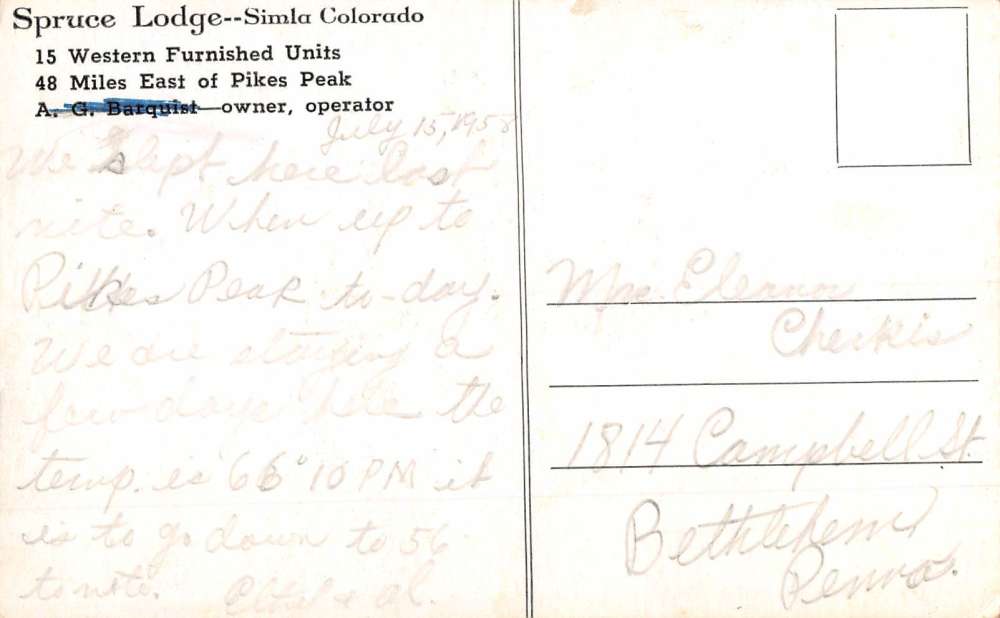 Spruce Lodge--Simla Colorado
15 Western Furnished Units
48 Miles East of Pikes Peak
A. G. Barquist—owner, operator
July 15, 1958
We slept here last
nite. When up to
Pikes Peak to-day.
We are staying a
few days here the
temp. is 66° 10 PM it
is to go down to 56
to nite. Ethel & Al.
Mrs. Eleanor
Cheskis
1814 Campbell St.
Bethlehem,
Penna.